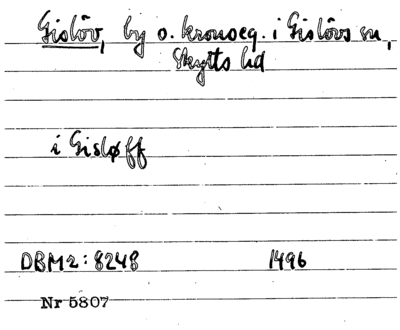 Gislöv, by o. kronoeg. i Gislövs sn,
Skytts hd
i Gisløff
DBM2: 8248 1496
Nr 5807